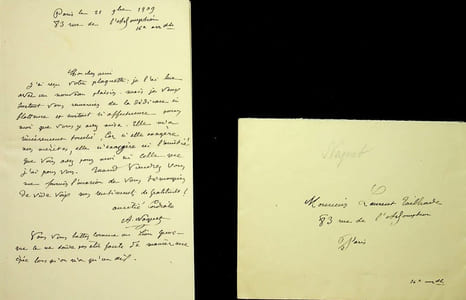 Paris le 21 9bre 1909
83 rue de l'Assomption
16e arrdt
Cher ami
J'ai reçu votre plaquette; je l'ai lue
avec un nouveau plaisir. mais je veux
surtout vous remercier de la dédicace si
flatteuse et surtout si affectueuse pour
moi que vous y avez mise. Elle m'a
sincèrement touché, Car si elle exagère
mes mérites, elle n'exagère ni l'amitié
que vous avez pour moi ni celle que
j'ai pour vous. Quand viendrez vous
me fournir l'occasion de vous témoigner
de vive voix mes sentiments de gratitude &
amitié
A. Naquet
Vous vous battez comme un lion
que lorsqu'on n'a qu'un
Naquet
Monsieur Laurent Tailhade
83 rue de l'Assomption
Paris
16e arrdt